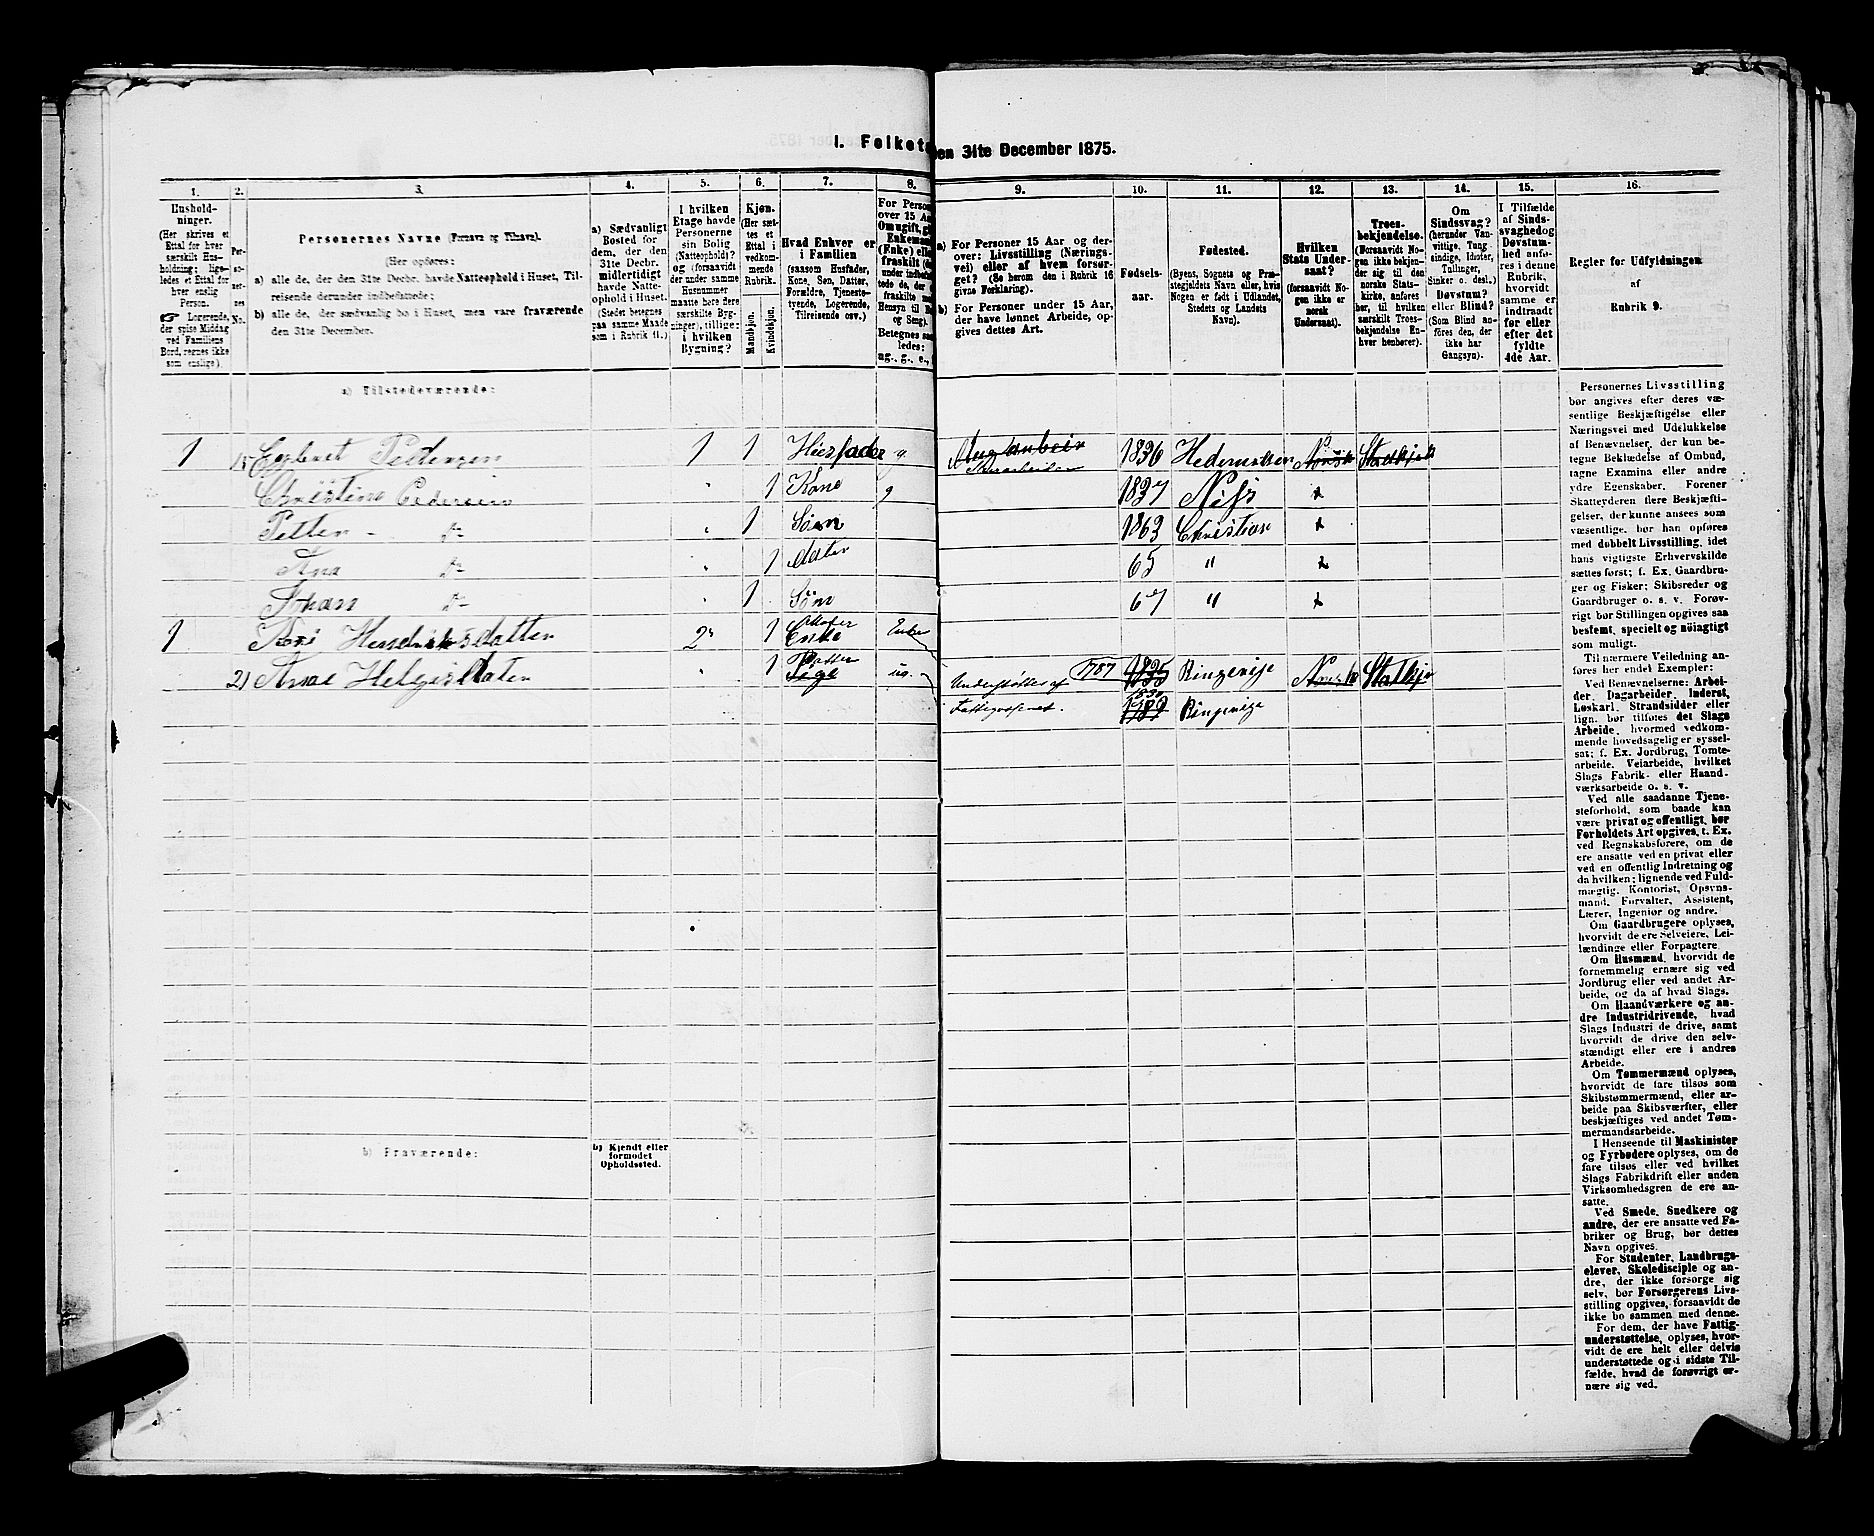 I. Folketæ
en 31te December 1875.
1. 2. 3. 4. 5. 6. 7. 8. 9. 10. 11. 12. 13. 14. 15. 16.
Hushold-
ninger.
(Her skrives et
Ettal for hver
særskilt Hus-
holdning; lige-
ledes et Ettal for
hver enslig
Person.
☞ Logerende,
der spise Middag
ved Familiens
Bord, regnes ikke
som enslige).
Per-
so-
ner-
nes
No.
Personernes Navne (Fornavn og Tilnavn).
(Her opføres:
a) alle de, der den 31te Decbr. havde Natteophold i Huset, Til-
reisende derunder indbefattede;
b) alle de, der sædvanlig bo i Huset, men vare fraværende
den 31te December.
a) Sædvanligt
Bosted for
dem, der den
31te Decbr.
midlertidigt
havde Natte-
ophold i Huset.
(Stedet betegnes
paa samme Maade
som i Rubrik 11.)
I hvilken
Etage havde
Personerne
sin Bolig
(Natteophold)?
og (forsaavidt
der under samme
Husnummer
maatte høre flere
særskilte Byg-
ninger), tillige:
i hvilken
Bygning?
Kjøn.
(Her sæt-
tes et
Ettal i
vedkom-
mende
Rubrik.
Mandkjøn.
Kvindekjøn.
Hvad Enhver er
i Familien
(saasom Husfader,
Kone, Søn, Datter,
Forældre, Tjeneste-
tyende, Logerende,
Tilreisende osv.)
For Person
over 15 Aar
Om ugift, gi
Enkemand
(Enke) elle
fraskilt (
under indbefat
tede de, der
fraskilte
Hensyn til Bo
og Seng).
Betegnes saa
ledes:
ug., g., e.,
a) For Personer 15 Aar og der-
over: Livsstilling (Nærings-
vei) eller af hvem forsør-
get? (Se herom den i Rubrik 16
givne Forklaring).
b) For Personer under 15 Aar,
der have lønnet Arbeide, op-
gives dettes Art.
Fødsels-
aar.
Fødested.
(Byens, Sognets og Præ-
stegjeldets Navn eller, hvis
Nogen er født i Udlandet,
Stedets og Landets
Navn).
Hvilken
Stats Under-
saat?
(forsaavidt No-
gen ikke er
norsk
Undersaat).
Troes-
bekjendelse.
(Forsaavidt No-
gen ikke bekjen-
der sig til den
norske Stats-
kirke, anføres
her, til hvilken
særskilt Troes-
bekjendelse En-
hver henhører).
Om
Sindssvag?
(herunder Van-
vittige, Tung-
sindige, Idioter,
Tullinger,
Sinker o. desl.)
Døvstum?
eller Blind?
(Som Blind an-
føres den, der
ikke har
Gangsyn).
I Tilfælde
af Sinds-
svaghed og
Døvstum-
hed anfø-
res i denne
Rubrik,
hvorvidt
samme er
indtraadt
før eller
efter det
fyldte
4de Aar.
Regler for Udfyldningen
af
Rubrik 9.
a) Tilstedeværende:
1 Pedersen 1 1 Huusfader g. 1836 Norsk
Christine Pedersen " 1 Kone g 1837
Petter - Do " 1 Søn 1863 Christian
Ana Do " 1 dater 65 "
Johan Do " 1 Søn 67 "
1 2 1 Enke Enke
2) 1 Datter ug. Understøttes af 1787 1835 Ringerige Norsk
Fattigvesenet. 1789 Ringerige
b) Fraværende:
b) Kjendt eller
formodet
Opholdssted.
Personernes Livsstilling
bør angives efter deres væ-
sentlige Beskjæftigelse eller
Næringsvei med Udelukkelse
af Benævnelser, der kun be-
tegne Beklædelse af Ombud,
tagne Examina eller andre
ydre Egenskaber. Forener
Skatteyderen flere Beskjæfti-
gelser, der kunne ansees som
væsentlige, bør han opføres
med dobbelt Livsstilling, idet
hans vigtigste Erhvervskilde
sættes først; f. Ex. Gaardbru-
ger og Fisker; Skibsreder og
Gaardbruger o. s. v. Forøv-
rigt bør Stillingen opgives saa
bestemt, specielt og nøiagtigt
som muligt.
Til nærmere Veiledning an-
føres her endel Exempler:
Ved Benævnelserne: Arbei-
der, Dagarbeider, Inderst,
Løskarl, Strandsidder eller
lign. bør tilføres det Slags
Arbeide, hvormed vedkom-
mende hovedsagelig er syssel-
sat; f. Ex. Jordbrug, Tomte-
arbeide, Veiarbeide, hvilket
Slags Fabrik- eller Haand-
værksarbeide o. s. v.
Ved alle saadanne Tjene-
steforhold, som baade kan
være privat og offentligt, bør
Forholdets Art opgives, t. Ex.
ved Regnskabsførere, om de
ere ansatte ved en privat eller
ved en offentlig Indretning og
da hvilken; lignende ved Fuld-
mægtig, Kontorist, Opsyns-
mand, Forvalter, Assistent,
Lærer, Ingeniør og andre.
Om Gaardbrugere oplyses,
hvorvidt de ere Selveiere, Lei-
lændinge eller Forpagtere.
Om Husmænd, hvorvidt de
fornemmelig ernære sig ved
Jordbrug eller ved andet Ar-
beide, og da af hvad Slags.
Om Haandværkere og an-
dre Industridrivende, hvad
Slags Industri de drive, samt
hvorvidt de drive den selv-
stændigt eller ere i andres
Arbeide.
Om Tømmermænd oplyses,
hvorvidt de fare tilsøs som
Skibstømmermænd, eller ar-
beide paa Skibsværfter, eller
beskjæftiges ved andet Tøm-
mermandsarbeide.
I Henseende til Maskinister
og Fyrbødere oplyses, om de
fare tilsøs eller ved hvilket
Slags Fabrikdrift eller anden
Virksomhedsgren de ere an-
satte.
Ved Smede, Snedkere og
andre, der ere ansatte ved Fa-
briker og Brug, bør dettes
Navn opgives.
For Studenter, Landbrugs-
elever, Skoledisciple og an-
dre, der ikke forsørge sig
selv, bør Forsørgerens Livs-
stilling opgives, forsaavidt de
ikke bo sammen med denne.
For dem, der have Fattig-
understøttelse, oplyses, hvor-
vidt de ere helt eller delvis
understøttede og i sidste Til-
fælde, hvad de forøvrigt er-
nære sig ved.